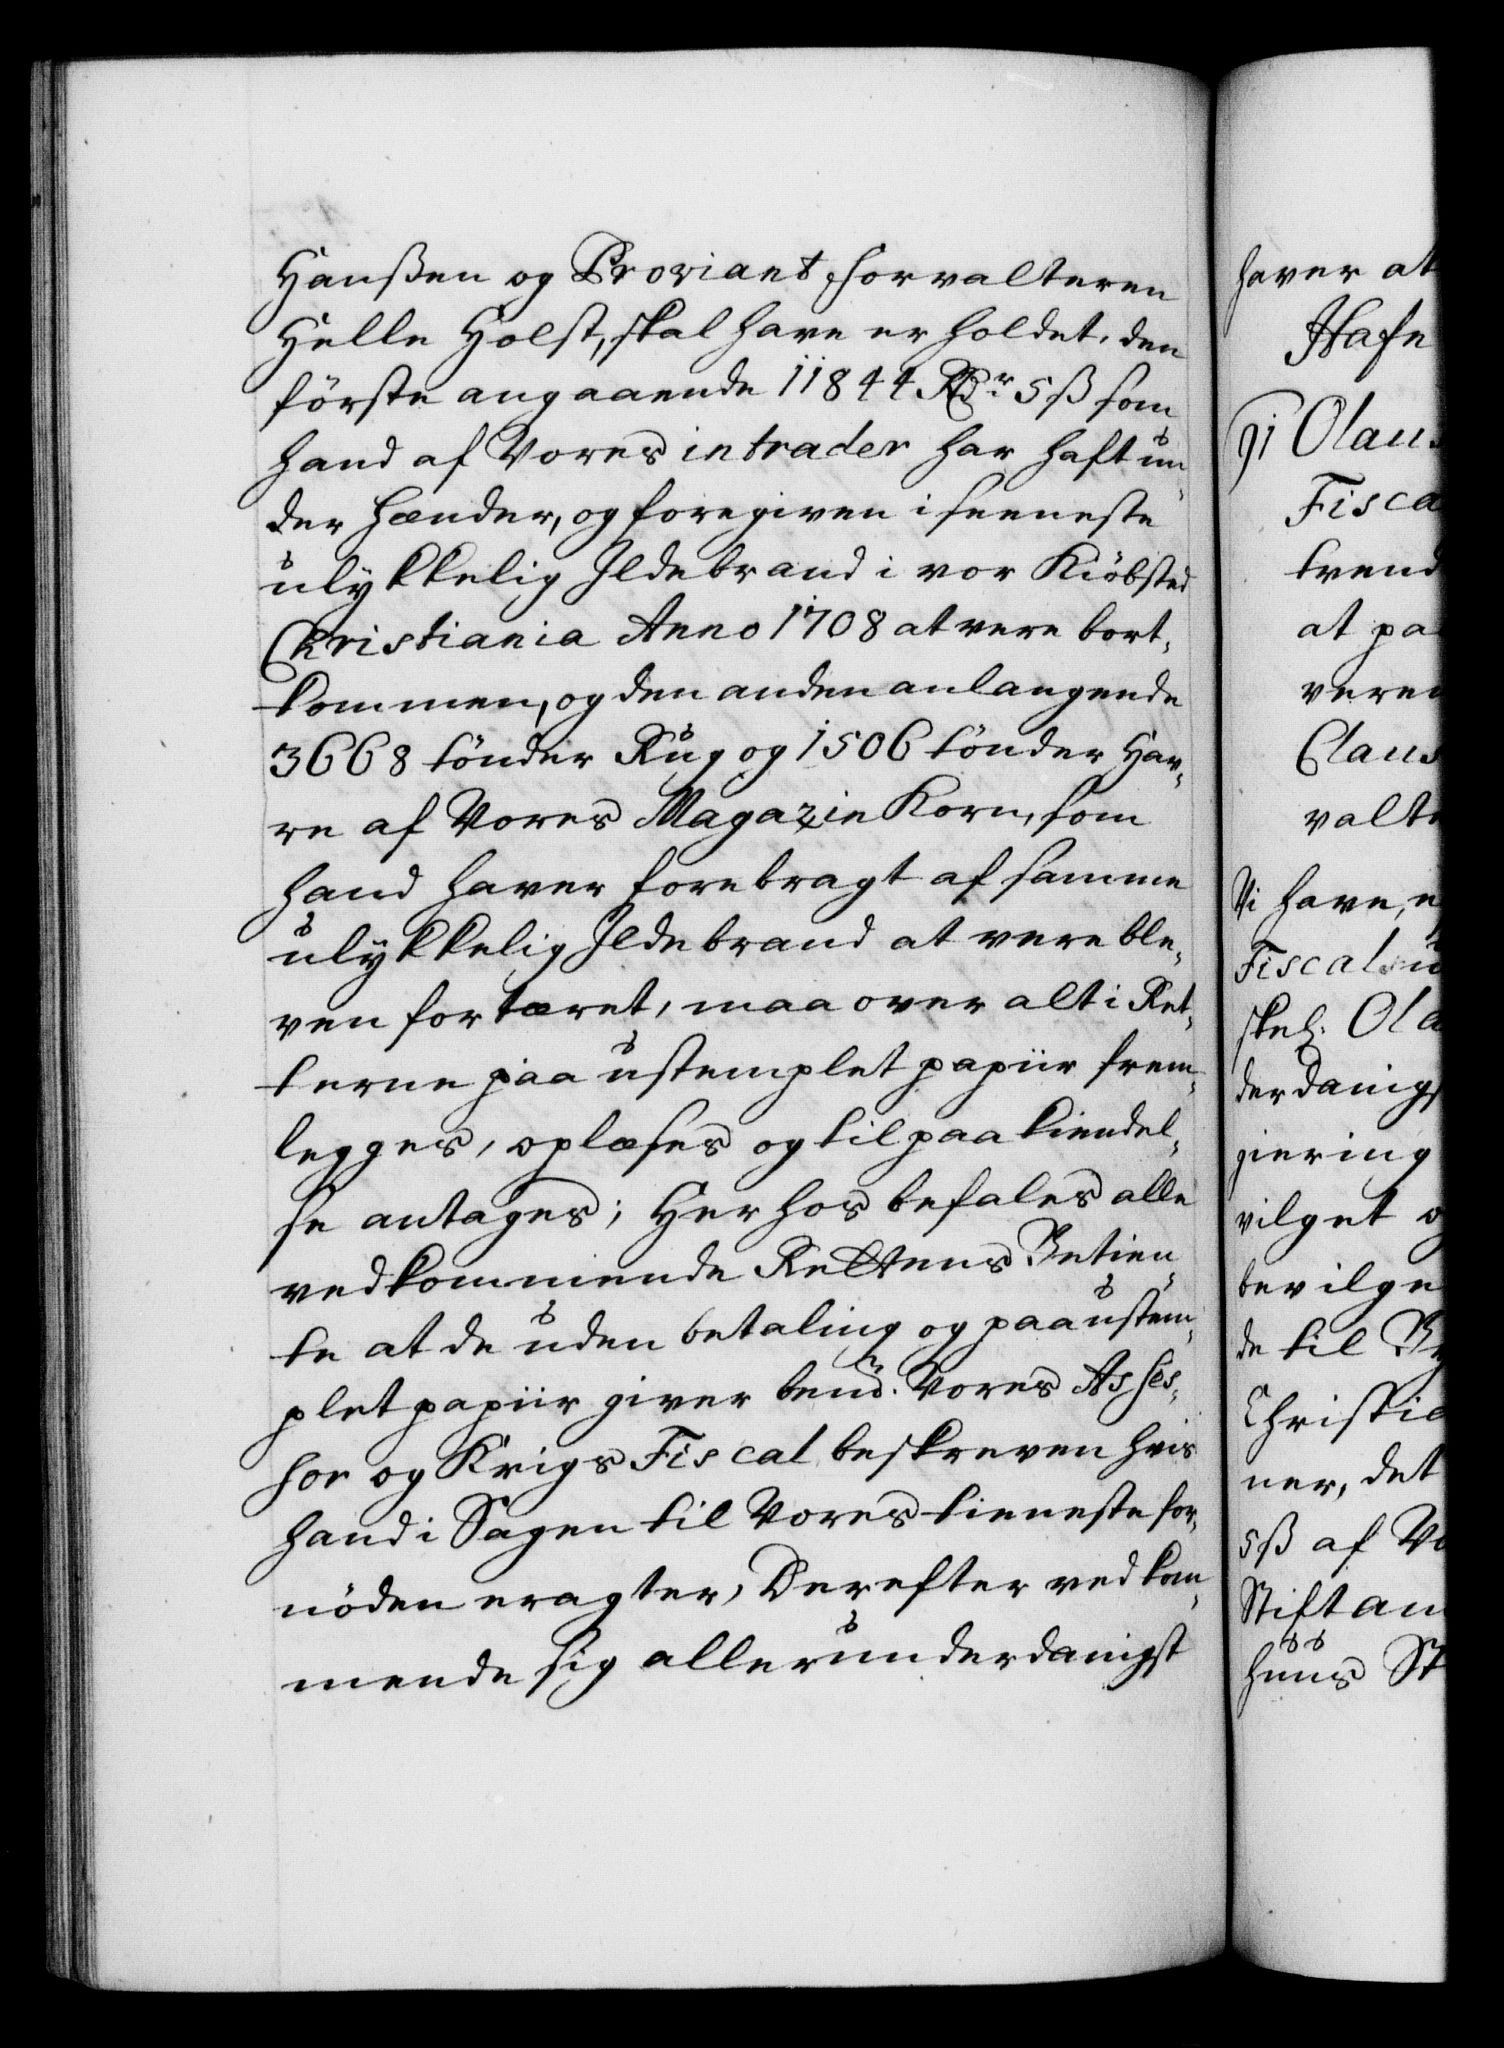 Hanßen og Proviant forvalteren
Helle Holst, skal have er holdet, den
förste angaaende 11844 Rdr 5 ß som
hand af Vores intrader har haft un¬
der hænder, og foregiven i seeneste
ulykkelig Ildebrand i vor Kiöbsted
Christiania Anno 1708 at vere bort¬
kommen, og den anden anlangende
3668 tönder Rug og 1506 tönder Hav¬
re af Vores Magazin Korn, som
hand haver forebragt af samme
ulykkelig Ildebrand at vere ble¬
ven fortæret, maa over alt i Ret¬
terne paa ustemplet papiir frem¬
legges, oplæses og til paakiendel¬
se antages; Her hos befales alle
vedkommende Rettens Betien¬
te at de uden betaling og paa ustem¬
plet papiir giver bemd. Vores Asses¬
sor og Krigs Fiscal beskreven hvis
hand i Sagen til Vores tieneste for¬
nöden eragter, Derefter vedkom¬
mende sig allerunderdanigst
haver at
Hafn
Vi Olaus
Fisca
trend
at paa
veren
Claus
valte
Vi have, e
Fiscal u
skel: Ola
derdanigs
giering
vilget o
bevilge
de til Be
Christia
ner, det
5 ß af Vo
Stiftam
huus St